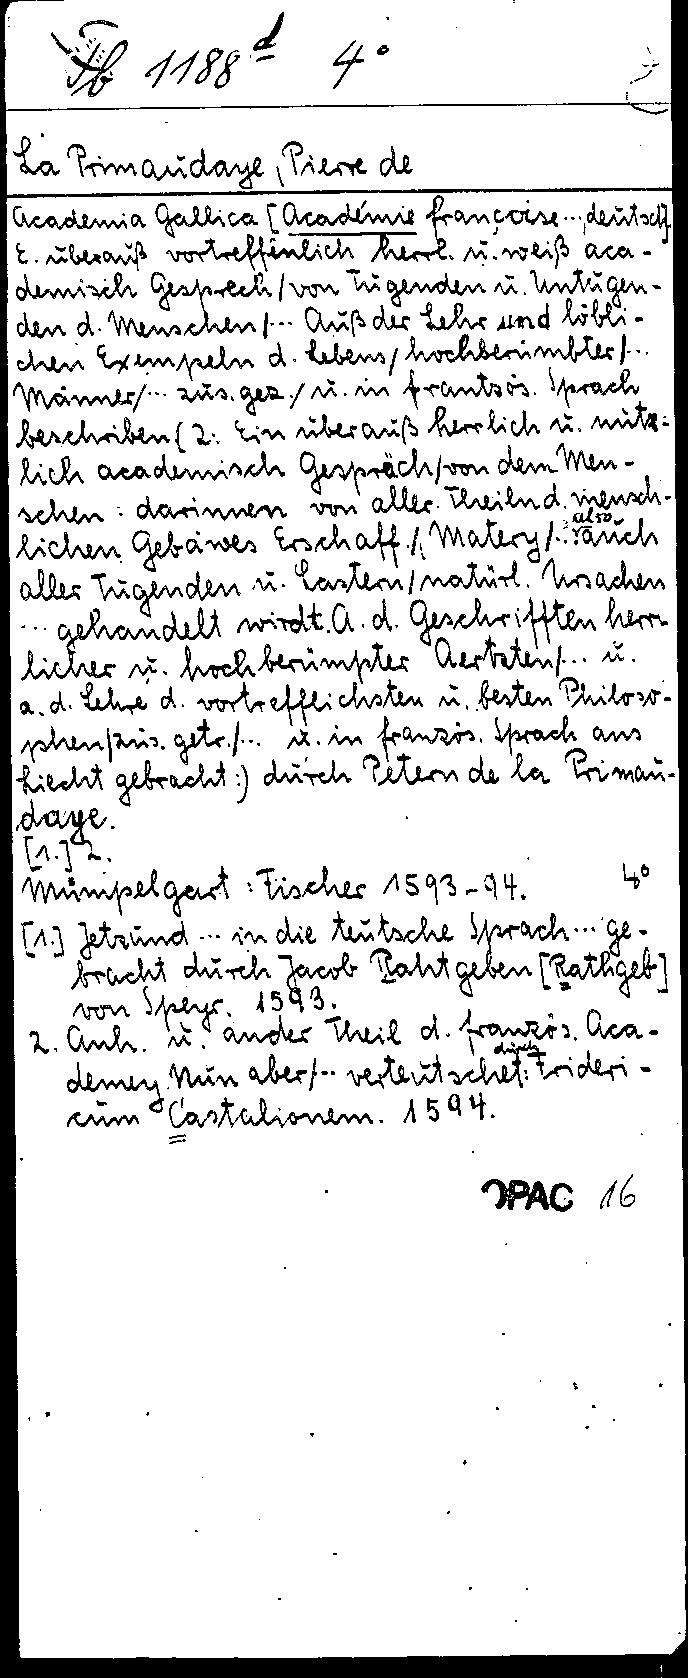 Fb 1188 d 4°
La Primaudaye, Pierre de
Academia Gallica [Académie françoise..., deutsch].
E. überauß vortreffenlich herrl. u. weiß aca-
demisch Gesprech/von Tugenden u. Untugen-
den d. Menschen/... Auß der Lehr und löbli-
chen Exempeln d. Lebens/hochberümbter/...
Männer/... zus.gez./u. in frantzös. Sprach
beschriben (2: Ein überauß herrlich u. nütz-
lich academisch Gespräch/von dem Men-
schen: darinnen von aller Theiln d. mensch-
lichen Gebäwes Erschaff./, Matery/... also auch
aller Tugenden u. Lastern/natürl. Ursachen
... gehandelt wirdt. A. d. Geschrifften herr-
licher u. hochberümpter Aertzten/... u.
a. d. Lehre d. vortrefflichsten u. besten Philoso-
phen/zus. getr./... u. in französ. Sprach ans
Liecht gebracht:) durch Petern de la Primau-
daye.
[1.] 2.
Mümpelgart: Fischer 1593-94. 4°
[1.] Jetzund ... in die teutsche Sprach ... ge-
bracht durch Jacob Rahtgeben [Rathgeb]
von Speyr. 1593.
2. Anh. u. ander Theil d. französ. Aca-
demey. Nun aber/... verteutschet: durch Frideri-
cum Castalionem. 1594.
OPAC 16